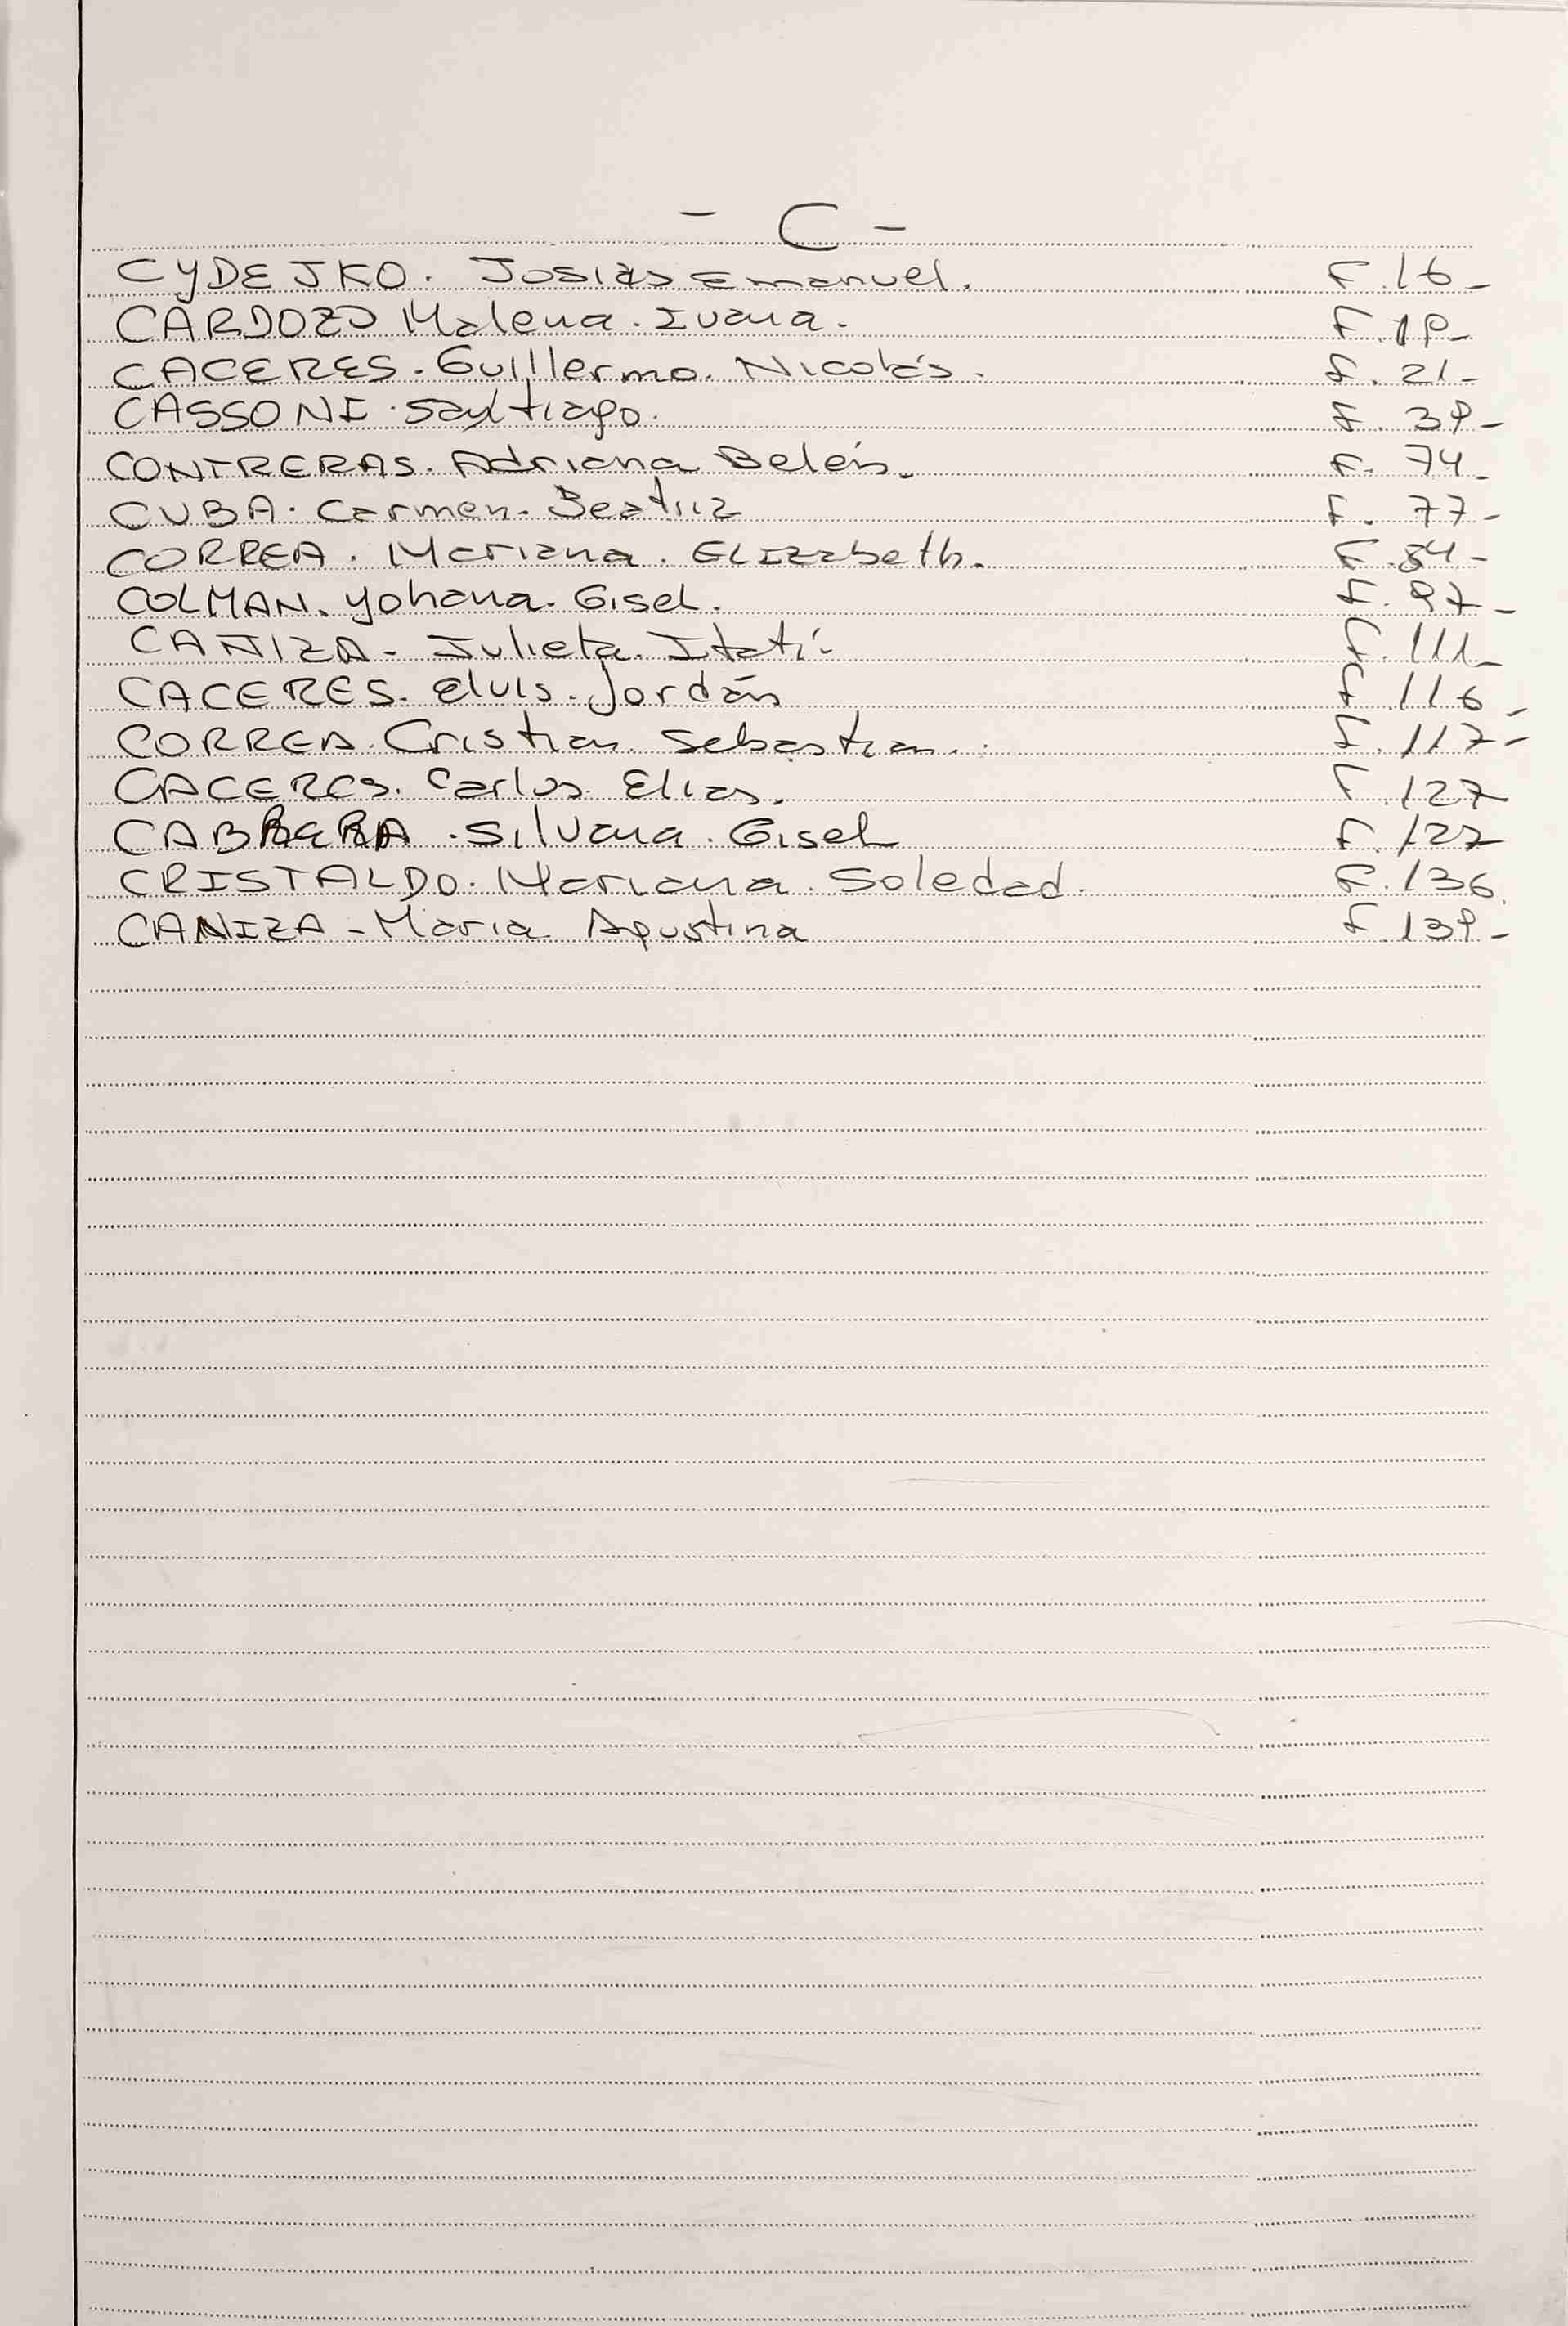 - C -
CYDEJKO. Josias Emanuel. F. 16-
CARDOZO Malena. Ivana. F. 19-
CACERES. Guillermo. Nicolás. F. 21-
CASSONE. Santiago. F. 39-
CONTRERAS. Adriana Belén. F. 74-
CUBA. Carmen. Beatriz F. 77-
CORREA. Mariana. ELIZabeth. F. 84-
COLMAN. Yohana. Gisel. F. 97-
CANIZA - Julieta. Itatí F. 111-
CACERES. Elvis. Jordán F. 116-
CORREA. Cristian Sebastian. F. 117-
CACERES. Carlos Elias. F. 127
CABRERA. Silvana. Gisel F. 127
CRISTALDO. Mariana. Soledad. F. 136.
CANIZA - Maria Agustina F. 139-